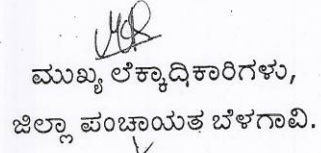 ಮುಖ್ಯ ಲೆಕ್ಕಾಧಿಕಾರಿಗಳು,
ಜಿಲ್ಲಾ ಪಂಚಾಯತ ಬೆಳಗಾವಿ.